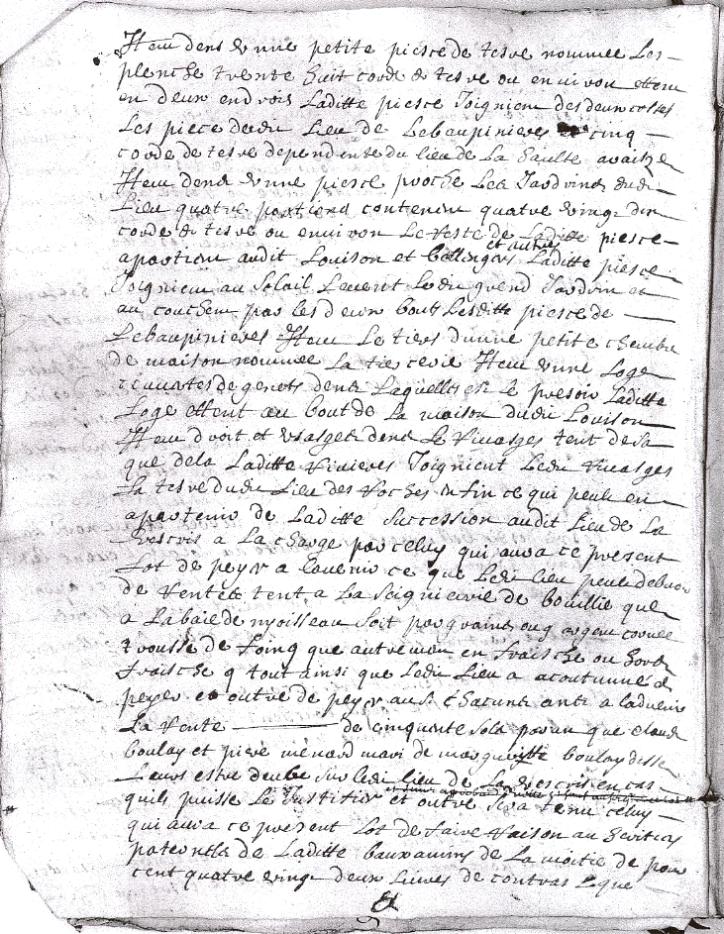 Item dens une petite piesce de terre nommee Les
plenche trente huit corde de terre ou environ ettent
en deux endrois Laditte piesce Joignient des deux costes
Les piece dudit Lieu de Lebaupinieres cinq
corde de terre dependente du lieu de La haulte
Item dens une piesce proche Les Jardrins dudit
Lieu quatre contenent quatre vingt dix
corde de terre ou environ Le reste de Laditte piesce
apartient audit Louison et bellinger et autres Laditte piesce
Joignient au Solail Levent Ledit grend Jardrin et
au couchent par les deux bouts Lesditte piesce de
Lebaupinieres Item Le tiers dunne petite chembre
de maison nommee La Item unne Loge
couvertes de genets dens Laquelles est le presoir Laditte
Loge ettent au bout de La maison dudit Louison
Item droit et usages dens Le Vivasges tent desa
que dela Laditte Rivieres Joignient Ledit Vivasges
La terre dudit Lieu des Roches Enfin ce qui peult en
apartenir de Laditte Succession audit Lieu de La
a La charge par celuy qui aura ce present
Lot de peyer a Lavenir ce que Ledit lieu peult debvoir
de Rentes tent a La Seignieurie de bouillie que
a Labaie de nyoisseau Soit par grains ou argent
trousse de foing que autrement en fraische ou hors
fraische et tout ainsi que Ledit Lieu a acoutumé de
peyer et outre de peyer aussi chacuns ants a Ladvenir
La Rente de cinquante Sols par an que claude
boulay et piere menard mari de margueritte boulay disse
Leurs estre deubt sur Ledit lieu de en cas
quils puisse Le Justifier et outre sera tenu celuy
qui aura ce present Lot de faire Raison au heritiers
paternels de Laditte de La moitie de
cent quatre vingt deux Livres de contras que